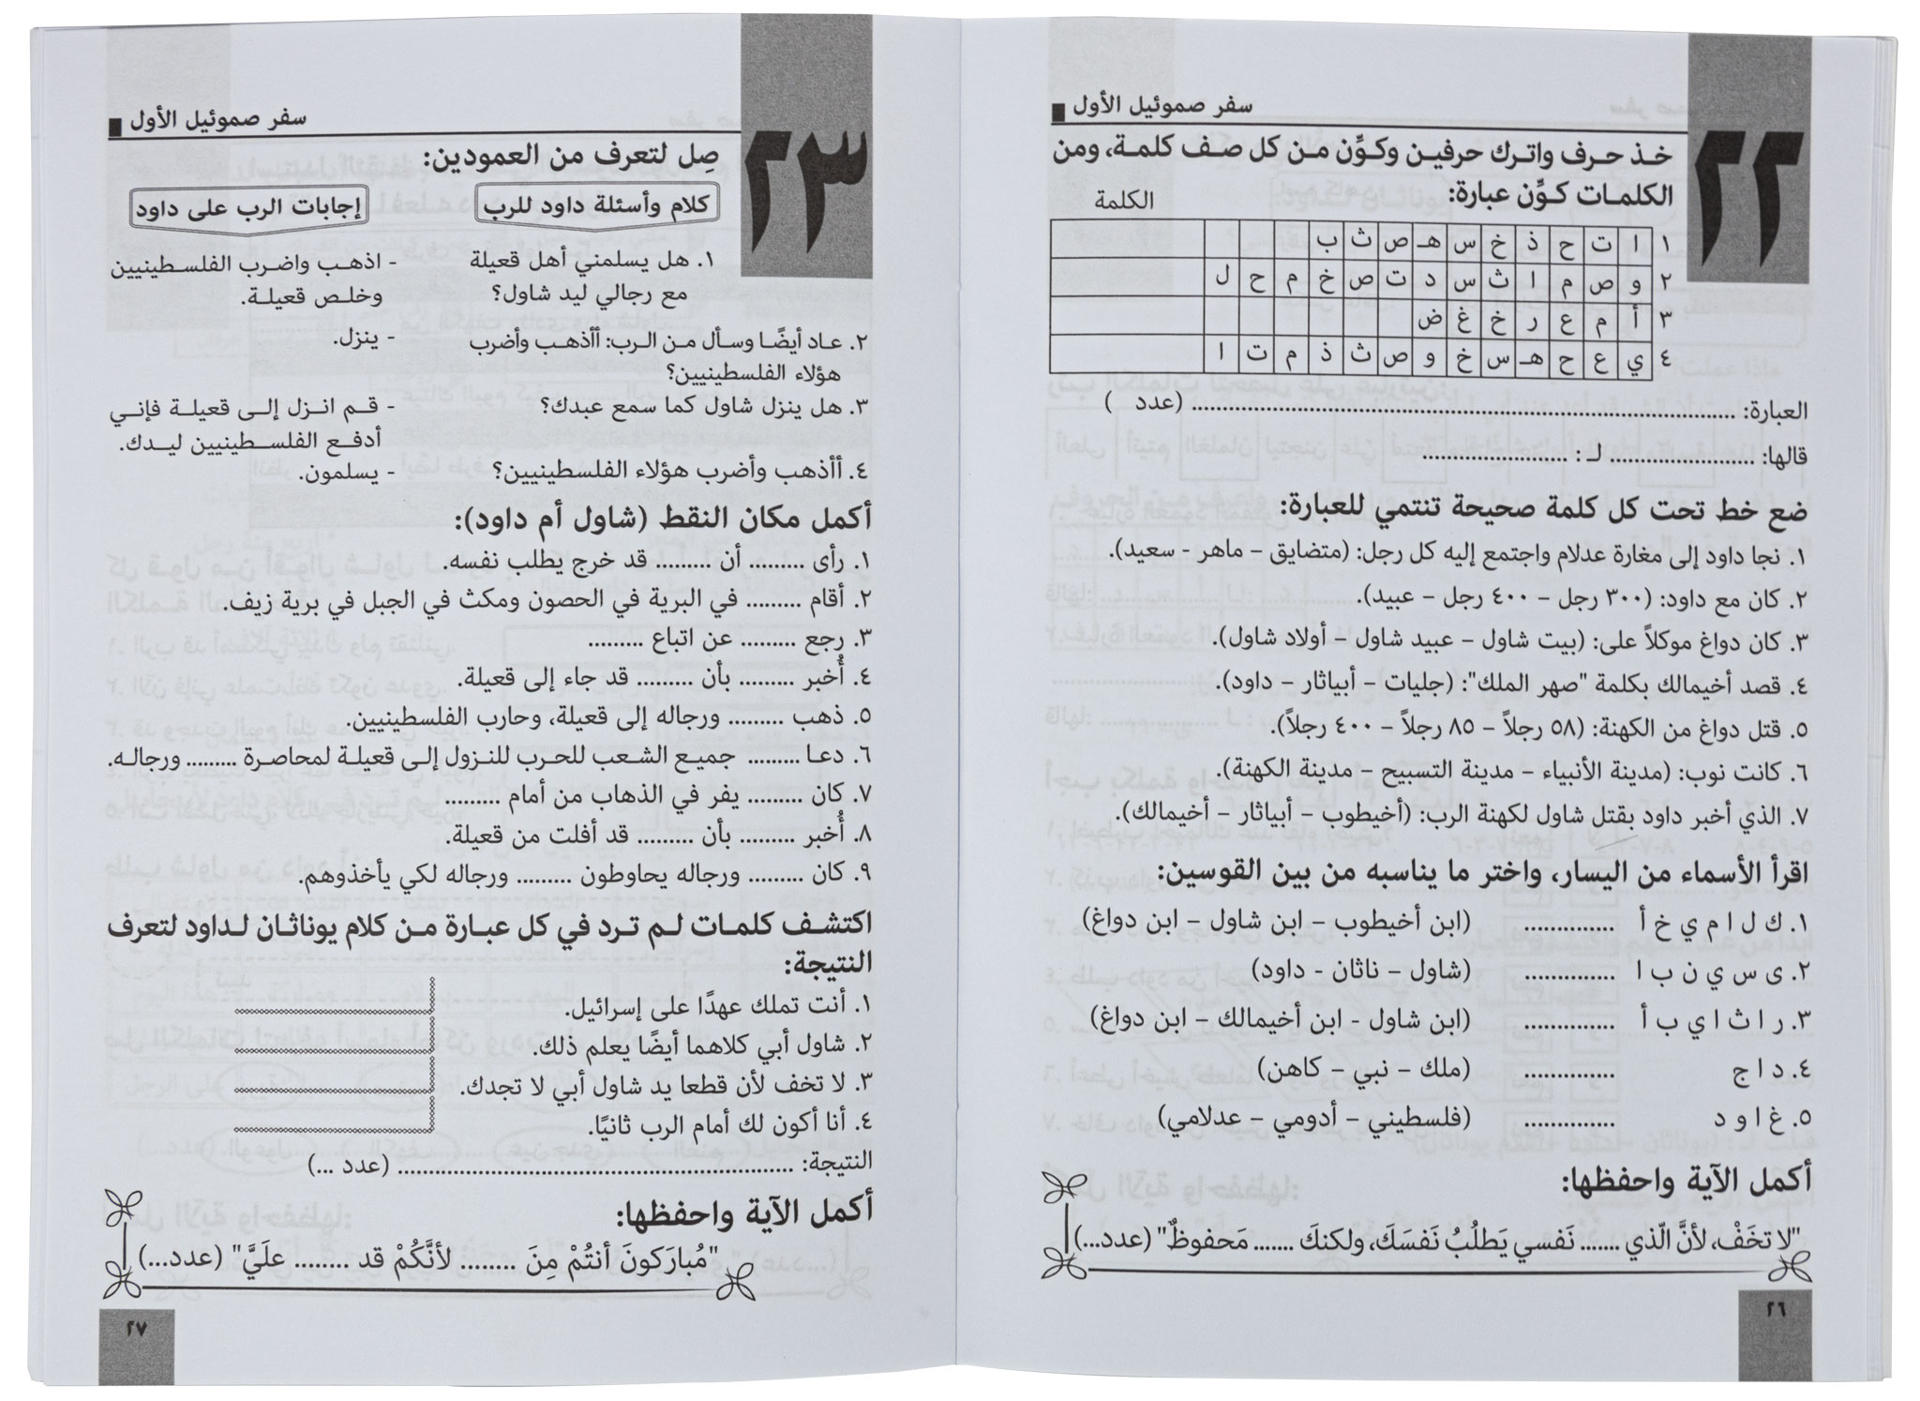 سفر صموئيل الأول
٢٢
خذ حرف واترك حرفين وكوِّن من كل صف كلمة، ومن
الكلمات كوِّن عبارة:
الكلمة
١ ا ت ح ذ خ س هـ ص ث ب
٢ و ص م ا ث س د ت ص خ م ح ل
٣ أ م ع ر خ غ ض
٤ ي ع ح هـ س خ و ص ث ذ م ت ا
العبارة: .......................................... (عدد )
قالها: ...................... لـ : ......................
ضع خط تحت كل كلمة صحيحة تنتمي للعبارة:
١. نجا داود إلى مغارة عدلام واجتمع إليه كل رجل: (متضايق – ماهر - سعيد).
٢. كان مع داود: (٣٠٠ رجل – ٤٠٠ رجل – عبيد).
٣. كان دواغ موكلاً على: (بيت شاول – عبيد شاول – أولاد شاول).
٤. قصد أخيمالك بكلمة "صهر الملك": (جليات – أبياثار – داود).
٥. قتل دواغ من الكهنة: (٥٨ رجلاً – ٨٥ رجلاً – ٤٠٠ رجلاً).
٦. كانت نوب: (مدينة الأنبياء – مدينة التسبيح – مدينة الكهنة).
٧. الذي أخبر داود بقتل شاول لكهنة الرب: (أخيطوب – أبياثار – أخيمالك).
اقرأ الأسماء من اليسار، واختر ما يناسبه من بين القوسين:
١. ك ل ا م ي خ أ .............. (ابن أخيطوب – ابن شاول – ابن دواغ)
٢. ى س ي ن ب ا .............. (شاول – ناثان - داود)
٣. ر ا ث ا ي ب أ .............. (ابن شاول - ابن أخيمالك – ابن دواغ)
٤. د ا ج .............. (ملك – نبي – كاهن)
٥. غ ا و د .............. (فلسطيني – أدومي – عدلامي)
أكمل الآية واحفظها:
"لا تخَفْ، لأنَّ الّذي ....... نَفسي يَطلُبُ نَفسَكَ، ولكنكَ ....... مَحفوظٌ" (عدد...)
٢٦
سفر صموئيل الأول
٢٣
صِل لتعرف من العمودين:
كلام وأسئلة داود للرب
إجابات الرب على داود
١. هل يسلمني أهل قعيلة - اذهـب واضـرب الفلسـطينيين
مع رجالي ليد شاول؟ وخلـص قعيلـة.
٢. عـاد أيضًـا وسـأل مـن الـرب: أأذهـب وأضرب - ينزل.
هؤلاء الفلسطينيين؟
٣. هل ينزل شاول كما سمع عبدك؟ - قـم انـزل إلـى قعيلـة فإنـي
أدفـع الفلسـطينيين ليـدك.
٤. أأذهب وأضرب هؤلاء الفلسطينيين؟ - يسلمون.
أكمل مكان النقط (شاول أم داود):
١. رأى ......... أن ......... قد خرج يطلب نفسه.
٢. أقام ......... في البرية في الحصون ومكث في الجبل في برية زيف.
٣. رجع ......... عن اتباع .........
٤. أُخبر ......... بأن ......... قد جاء إلى قعيلة.
٥. ذهب ......... ورجاله إلى قعيلة، وحارب الفلسطينيين.
٦. دعـا ......... جميـع الشـعب للحـرب للنـزول إلـى قعيلـة لمحاصـرة ......... ورجالـه.
٧. كان ......... يفر في الذهاب من أمام .........
٨. أُخبر ......... بأن ......... قد أفلت من قعيلة.
٩. كان ......... ورجاله يحاوطون ......... ورجاله لكي يأخذوهم.
اكتشـف كلمـات لـم تـرد في كل عبـارة مـن كلام يوناثـان لـداود لتعرف
النتيجة:
١. أنت تملك عهدًا على إسرائيل.
٢. شاول أبي كلاهما أيضًا يعلم ذلك.
٣. لا تخف لأن قطعا يد شاول أبي لا تجدك.
٤. أنا أكون لك أمام الرب ثانيًا.
النتيجة: .......................................... (عدد ...)
أكمل الآية واحفظها:
"مُبارَكونَ أنتُمْ مِنَ ........ لأنَّكُمْ قد ........ علَيَّ" (عدد...)
٢٧